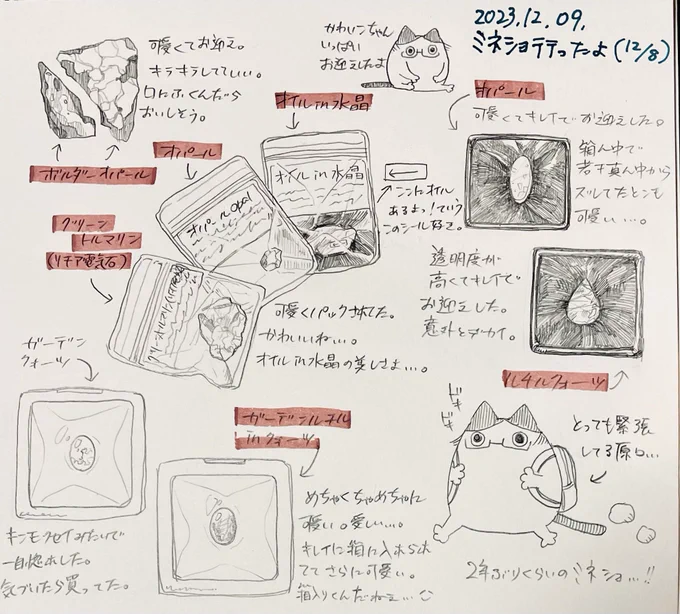 2023.12.09.
ミネショ行ったよ(12/8)
かわいこちゃん
いっぱい
お迎えしたよ
可愛くてお迎え。
キラキラしてていい。
口にふくんだら
おいしそう。
ボルダーオパール
オイルin水晶
オパール
オパール
可愛くてキレイでお迎えした。
箱ん中で
若干真ん中から
ズレてたとこも
可愛い…。
オイルin水晶
オパール Opal
ここにオイル
あるよっ!ていう
このシール好き。
グリーン
トルマリン
(リチア電気石)
透明度が
高くてキレイで
お迎えした。
意外とデカイ。
ルチルクォーツ
可愛くパックされてた。
かわいいね…。
オイルin水晶の美しさよ…。
ガーデン
クォーツ
キンモクセイみたいで
一目惚れした。
気づいたら買ってた。
ガーデンルチル
inクォーツ
めちゃくちゃめちゃに
可愛い。愛しい…。
キレイに箱に入れられ
ててさらに可愛い。
箱入りくんだねえ…
ドキ
ドキ
とっても緊張
してる原口…
2年ぶりくらいのミネショ…!!